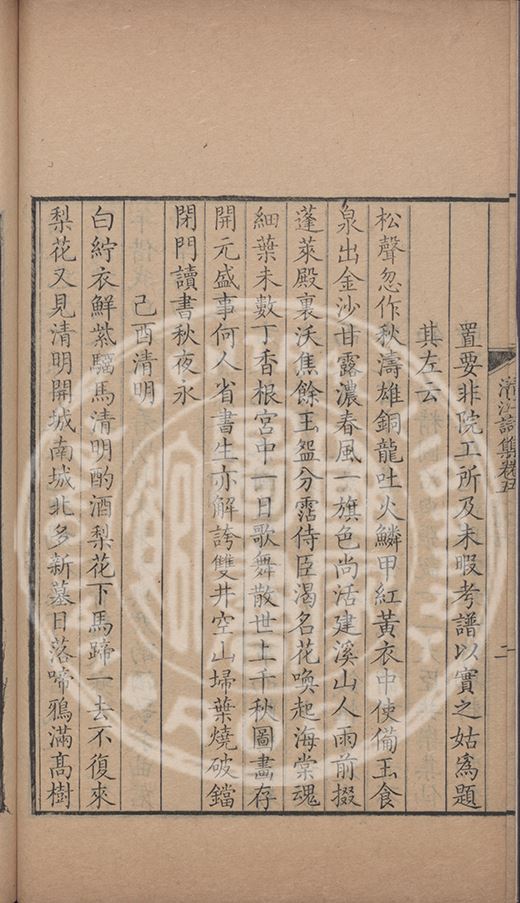 濟江詩集卷五
二
置要非院工所及未暇考譜以實之姑為題
其左云
松聲忽作秋濤雄銅龍吐火鱗甲紅黃衣中使備玉食
泉出金沙甘露濃春風一旗色尚活建溪山人雨前掇
蓬萊殿裏沃焦餘玉盌分霑侍臣渴名花喚起海棠魂
細葉未數丁香根宮中一日歌舞散世上千秋圖畫存
開元盛事何人省書生亦解誇雙井空山埽葉燒破鐺
閉門讀書秋夜永
己酉清明
白紵衣鮮紫騮馬清明酌酒梨花下馬蹄一去不復來
梨花又見清明開城南城北多新墓日落啼鴉滿高樹